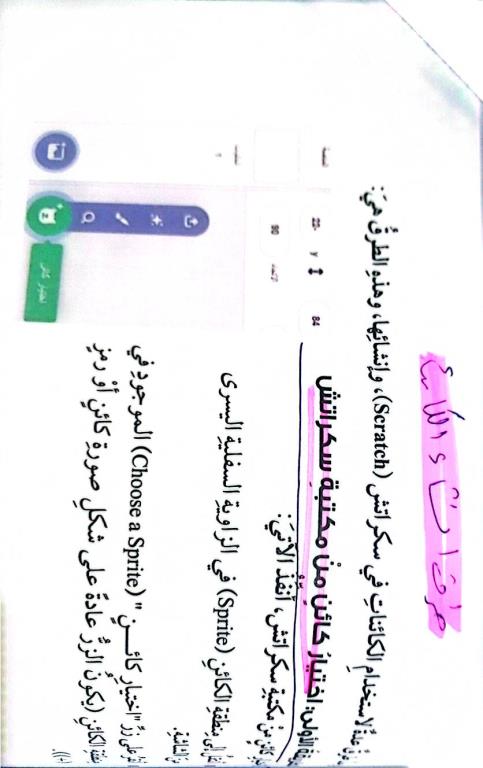 طرق انشاء الكائن
عدة لاستخدام الكائنات في سكراتش (Scratch)، وإنشائها، وهذه الطرق هي:
الأولى: اختيار كائن من مكتبة سكراتش
كائن من مكتبة سكراتش، أنفذ الآتي:
إلى منطقة الكائن (Sprite) في الزاوية السفلية اليسرى
من الشاشة.
على زر "اختيار كائن" (Choose a Sprite) الموجود في
منطقة الكائن (يكون الزر عادة على شكل صورة كائن أو رمز
(+)).
y
84
90
اختيار كائن